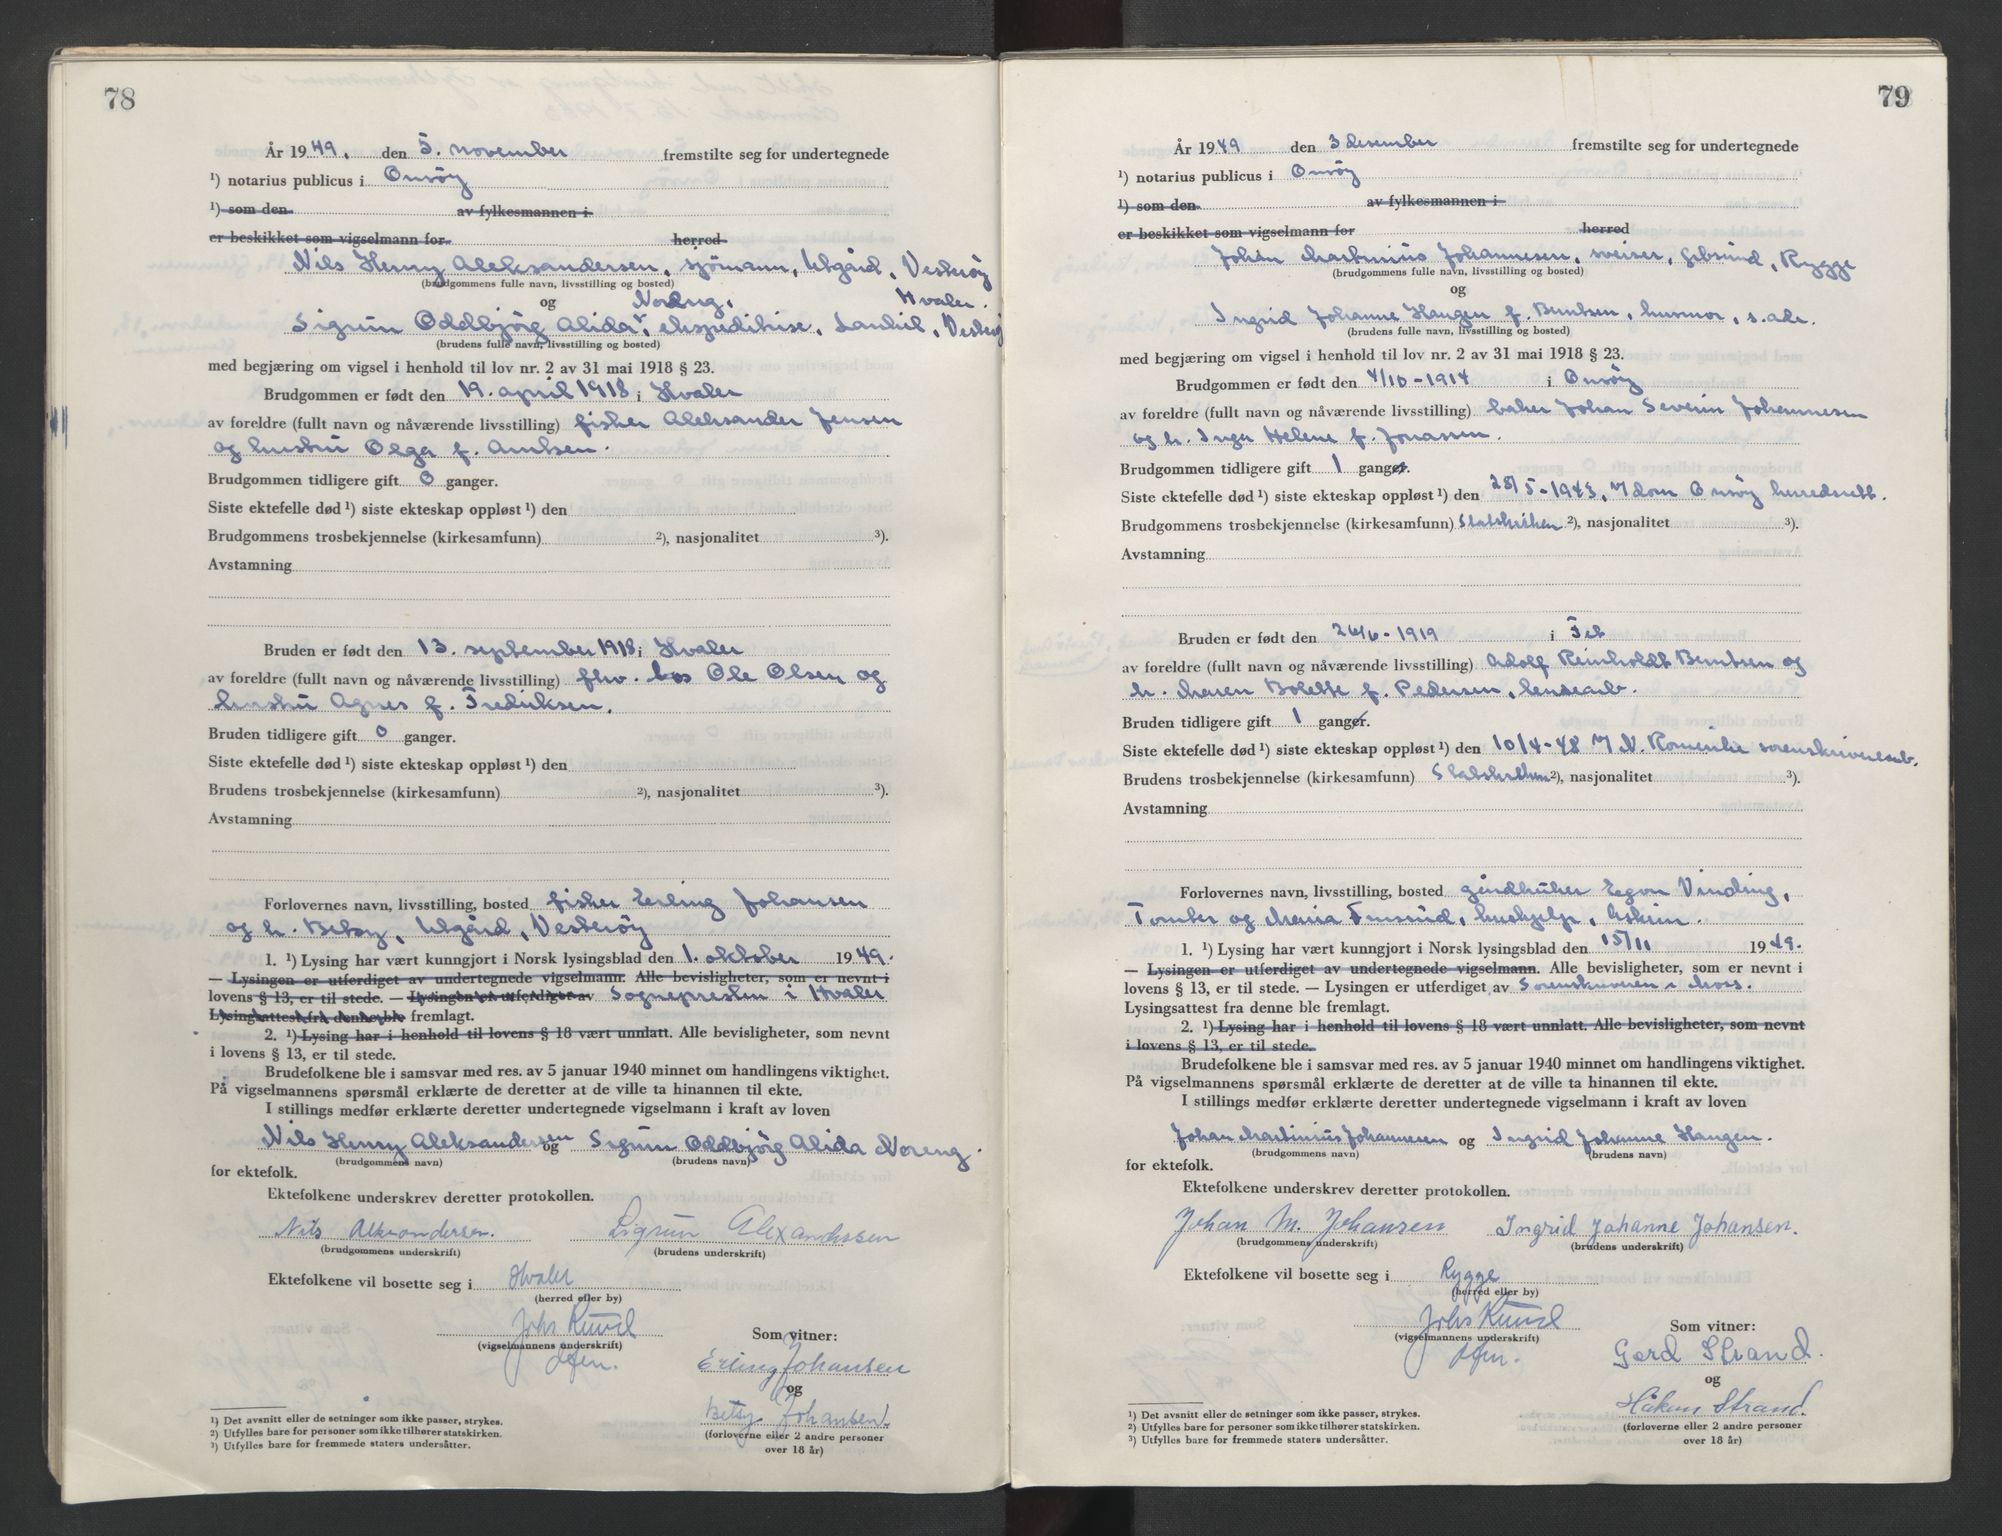 78
År 1949. den 5. november fremstilte seg for undertegnede
¹) notarius publicus i Onsöy
¹) som den av fylkesmannen i
er beskikket som vigselmann for herred
Nils Henry Aleksandersen, sjömann, Utgård, Vesteröy
(brudgommens fulle navn, livsstilling og bosted) Hvaler.
og Noreng,
Sigrun Oddbjörg Alida, ekspeditrise, Vesteröy
(brudens fulle navn, livsstilling og bosted)
med begjæring om vigsel i henhold til lov nr. 2 av 31 mai 1918 § 23.
Brudgommen er født den 19. april 1918 i Hvaler
av foreldre (fullt navn og nåværende livsstilling) fisker Aleksander Jensen
og hustru Olga f. Arntsen.
Brudgommen tidligere gift 0 ganger.
Siste ektefelle død ¹) siste ekteskap oppløst ¹) den
Brudgommens trosbekjennelse (kirkesamfunn) ²), nasjonalitet ³).
Avstamning
Bruden er født den 13. september 1918 i Hvaler
av foreldre (fullt navn og nåværende livsstilling) fhv. los Ole Olsen og
hustru Agnes f. Fredriksen.
Bruden tidligere gift 0 ganger.
Siste ektefelle død ¹) siste ekteskap oppløst ¹) den
Brudens trosbekjennelse (kirkesamfunn) ²), nasjonalitet ³).
Avstamning
Forlovernes navn, livsstilling, bosted fisker Erling Johansen
og h. Betsy, Utgård, Vesteröy
1. ¹) Lysing har vært kunngjort i Norsk lysingsblad den 1. oktober 1949.
— Lysingen er utferdiget av undertegnede vigselmann. Alle bevisligheter, som er nevnt i
lovens § 13, er til stede. — Lysingen er utferdiget av Sognepresten i Hvaler
Lysingsattest fra denne ble fremlagt.
2. ¹) Lysing har i henhold til lovens § 18 vært unnlatt. Alle bevisligheter, som nevnt
i lovens § 13, er til stede.
Brudefolkene ble i samsvar med res. av 5 januar 1940 minnet om handlingens viktighet.
På vigselmannens spørsmål erklærte de deretter at de ville ta hinannen til ekte.
I stillings medfør erklærte deretter undertegnede vigselmann i kraft av loven
Nils Henry Aleksandersen og Sigrun Oddbjörg Alida Noreng.
(brudgommens navn) (brudens navn)
for ektefolk.
Ektefolkene underskrev deretter protokollen.
Nils Alexandersen. Sigrun Alexandersen
(brudgommens underskrift) (brudens underskrift)
Ektefolkene vil bosette seg i Hvaler
(herred eller by)
Johs Kunøl
(vigselmannens underskrift) Som vitner:
Erling Johansen
og
Betsy Johansen.
(forloverne eller 2 andre personer
over 18 år)
¹) Det avsnitt eller de setninger som ikke passer, strykes.
²) Utfylles bare for personer som ikke tilhører statskirken.
³) Utfylles bare for fremmede staters undersåtter.
79
År 1949 den 3 desember fremstilte seg for undertegnede
¹) notarius publicus i Onsöy
¹) som den av fylkesmannen i
er beskikket som vigselmann for herred
Johan Martinius Johannesen, sveiser, Gipsund, Rygge
(brudgommens fulle navn, livsstilling og bosted)
og
Ingrid Johanne Haugen f. Berntsen, husmor, s. adr.
(brudens fulle navn, livsstilling og bosted)
med begjæring om vigsel i henhold til lov nr. 2 av 31 mai 1918 § 23.
Brudgommen er født den 4/10-1914 i Onsöy
av foreldre (fullt navn og nåværende livsstilling) baker Johan Severin Johannesen
og h. Inga Helene f. Jonassen.
Brudgommen tidligere gift 1 ganger.
Siste ektefelle død ¹) siste ekteskap oppløst ¹) den 25/5-1943, v/dom Onsöy herredsrett.
Brudgommens trosbekjennelse (kirkesamfunn) Statskirken ²), nasjonalitet ³).
Avstamning
Bruden er født den 26/6-1919 i Fet
av foreldre (fullt navn og nåværende livsstilling) Adolf Reinholdt Berntsen og
h. Maren Bolette f. Pedersen, lensearb.
Bruden tidligere gift 1 ganger.
Siste ektefelle død ¹) siste ekteskap oppløst ¹) den 10/4-48 v/ N. Romerike sorenskriveremb.
Brudens trosbekjennelse (kirkesamfunn) Statskirken ²), nasjonalitet ³).
Avstamning
Forlovernes navn, livsstilling, bosted gårdbruker Egon Vinding,
Tomter og Maria Furusund, hushjelp, Askim.
1. ¹) Lysing har vært kunngjort i Norsk lysingsblad den 15/11 1949.
— Lysingen er utferdiget av undertegnede vigselmann. Alle bevisligheter, som er nevnt i
lovens § 13, er til stede. — Lysingen er utferdiget av Sorenskriveren i Moss.
Lysingsattest fra denne ble fremlagt.
2. ¹) Lysing har i henhold til lovens § 18 vært unnlatt. Alle bevisligheter, som nevnt
i lovens § 13, er til stede.
Brudefolkene ble i samsvar med res. av 5 januar 1940 minnet om handlingens viktighet.
På vigselmannens spørsmål erklærte de deretter at de ville ta hinannen til ekte.
I stillings medfør erklærte deretter undertegnede vigselmann i kraft av loven
Johan Martinius Johannesen og Ingrid Johanne Haugen.
(brudgommens navn) (brudens navn)
for ektefolk.
Ektefolkene underskrev deretter protokollen.
Johan M. Johansen Ingrid Johanne Johansen.
(brudgommens underskrift) (brudens underskrift)
Ektefolkene vil bosette seg i Rygge
(herred eller by)
Johs Kunøl
(vigselmannens underskrift) Som vitner:
Gerd Strand.
og
Håkon Strand.
(forloverne eller 2 andre personer
over 18 år)
¹) Det avsnitt eller de setninger som ikke passer, strykes.
²) Utfylles bare for personer som ikke tilhører statskirken.
³) Utfylles bare for fremmede staters undersåtter.